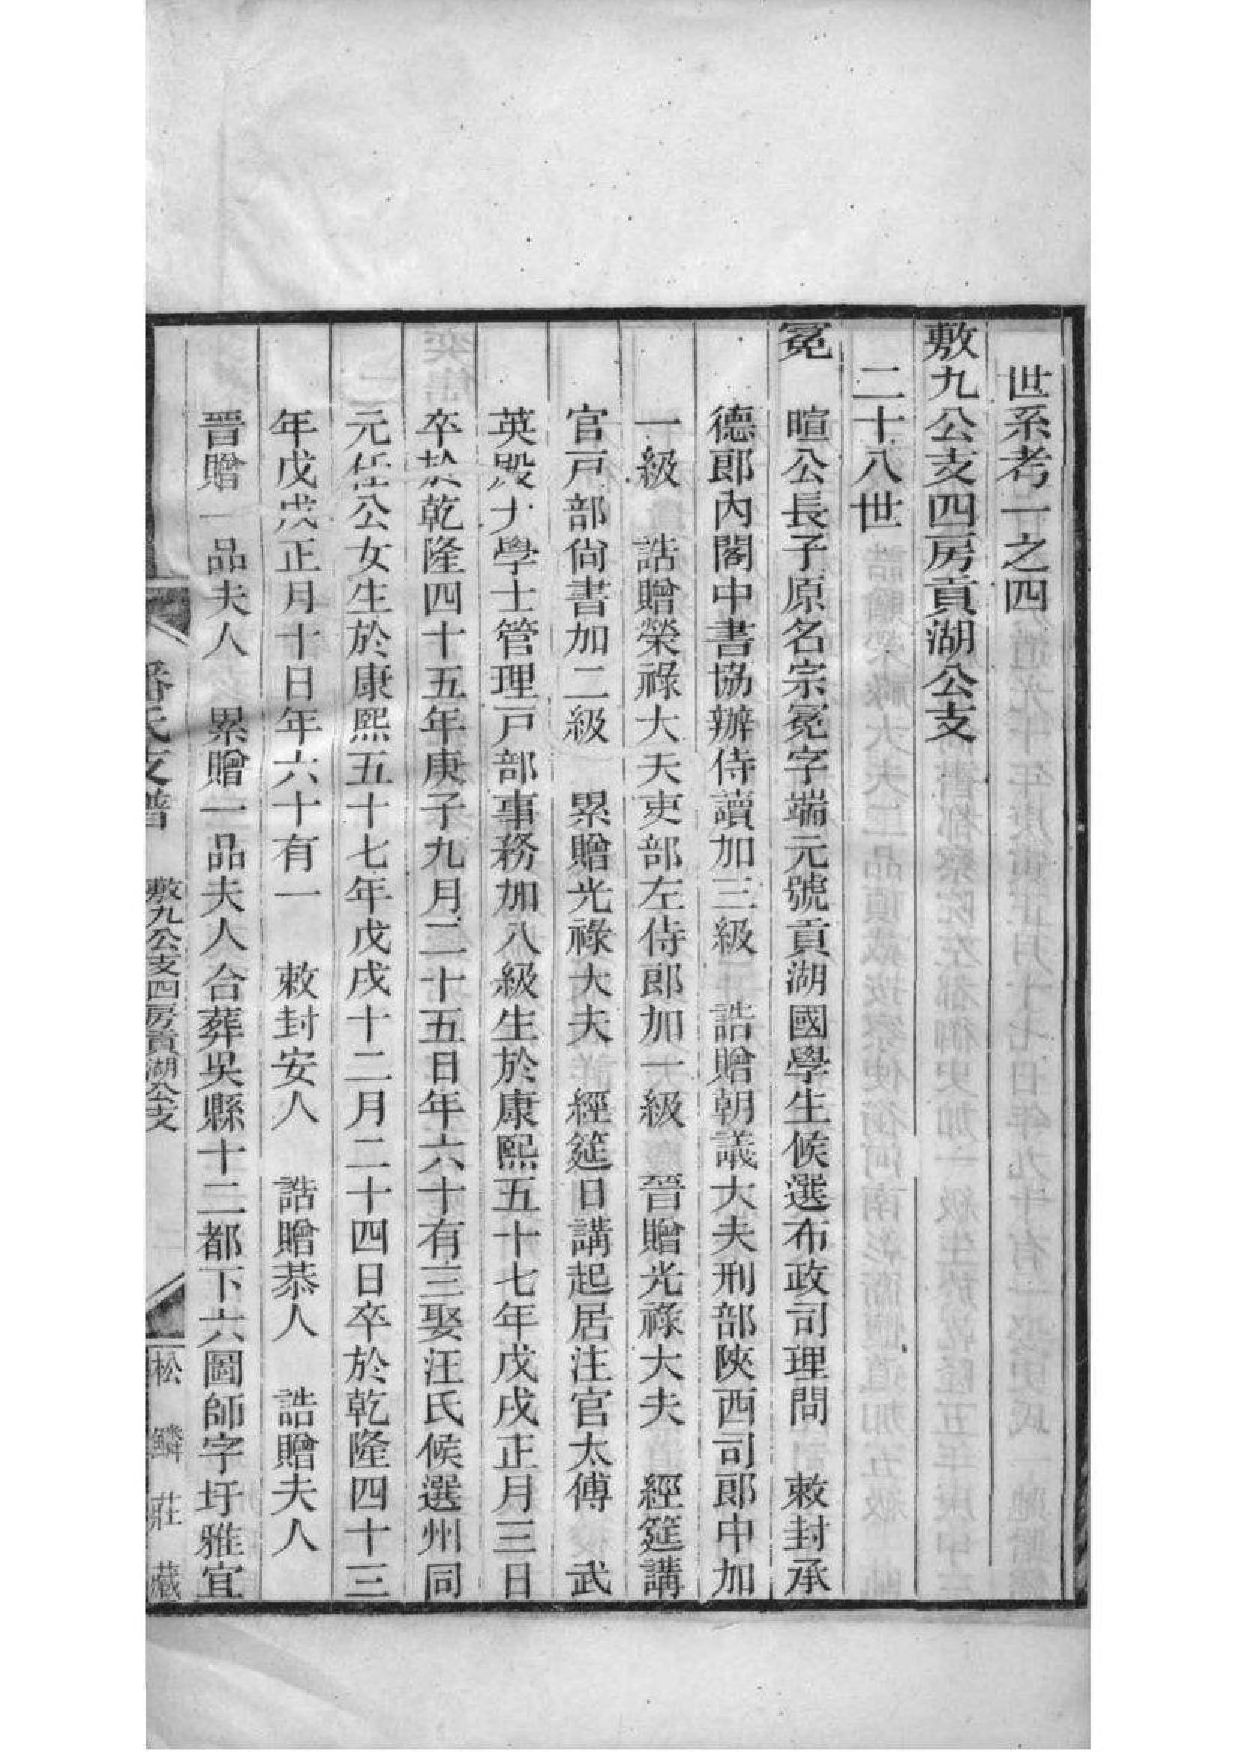 世系考一之四
敷九公支四房貢湖公支
二十八世
冕　暄公長子原名宗冕字端元號貢湖國學生候選布政司理問　敕封承
德郎內閣中書協辦侍讀加三級　誥贈朝議大夫刑部陝西司郎中加
一級　誥贈榮祿大夫吏部左侍郎加一級　晉贈光祿大夫　經筵講
官戶部尙書加二級　累贈光祿大夫　經筵日講起居注官太傅　武
英殿大學士管理戶部事務加八級生於康熙五十七年戊戌正月三日
卒於乾隆四十五年庚子九月二十五日年六十有三娶汪氏候選州同
元任公女生於康熙五十七年戊戌十二月二十四日卒於乾隆四十三
年戊戌正月十日年六十有一　敕封安人　誥贈恭人　誥贈夫人
晉贈一品夫人　累贈一品夫人合葬吳縣十二都下六圖師字圩雅宜
潘氏支譜　敷九公支四房貢湖公支　一　松鱗莊藏